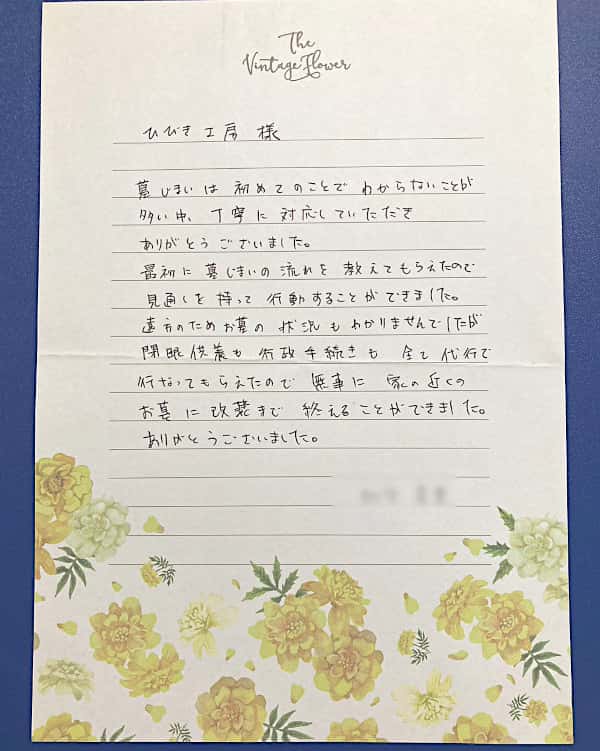 The
Vintage Flower
ひびき工房 様
墓じまいは 初めてのことで わからないことが
多い中、丁寧に対応していただき
ありがとうございました。
最初に 墓じまいの 流れを 教えてもらえたので
見通しを 持って 行動することができました。
遠方のため お墓の 状況も わかりませんでしたが
閉眼供養も 行政手続きも 全て 代行で
行なってもらえたので 無事に 家の近くの
お墓に 改葬まで 終えることができました。
ありがとうございました。